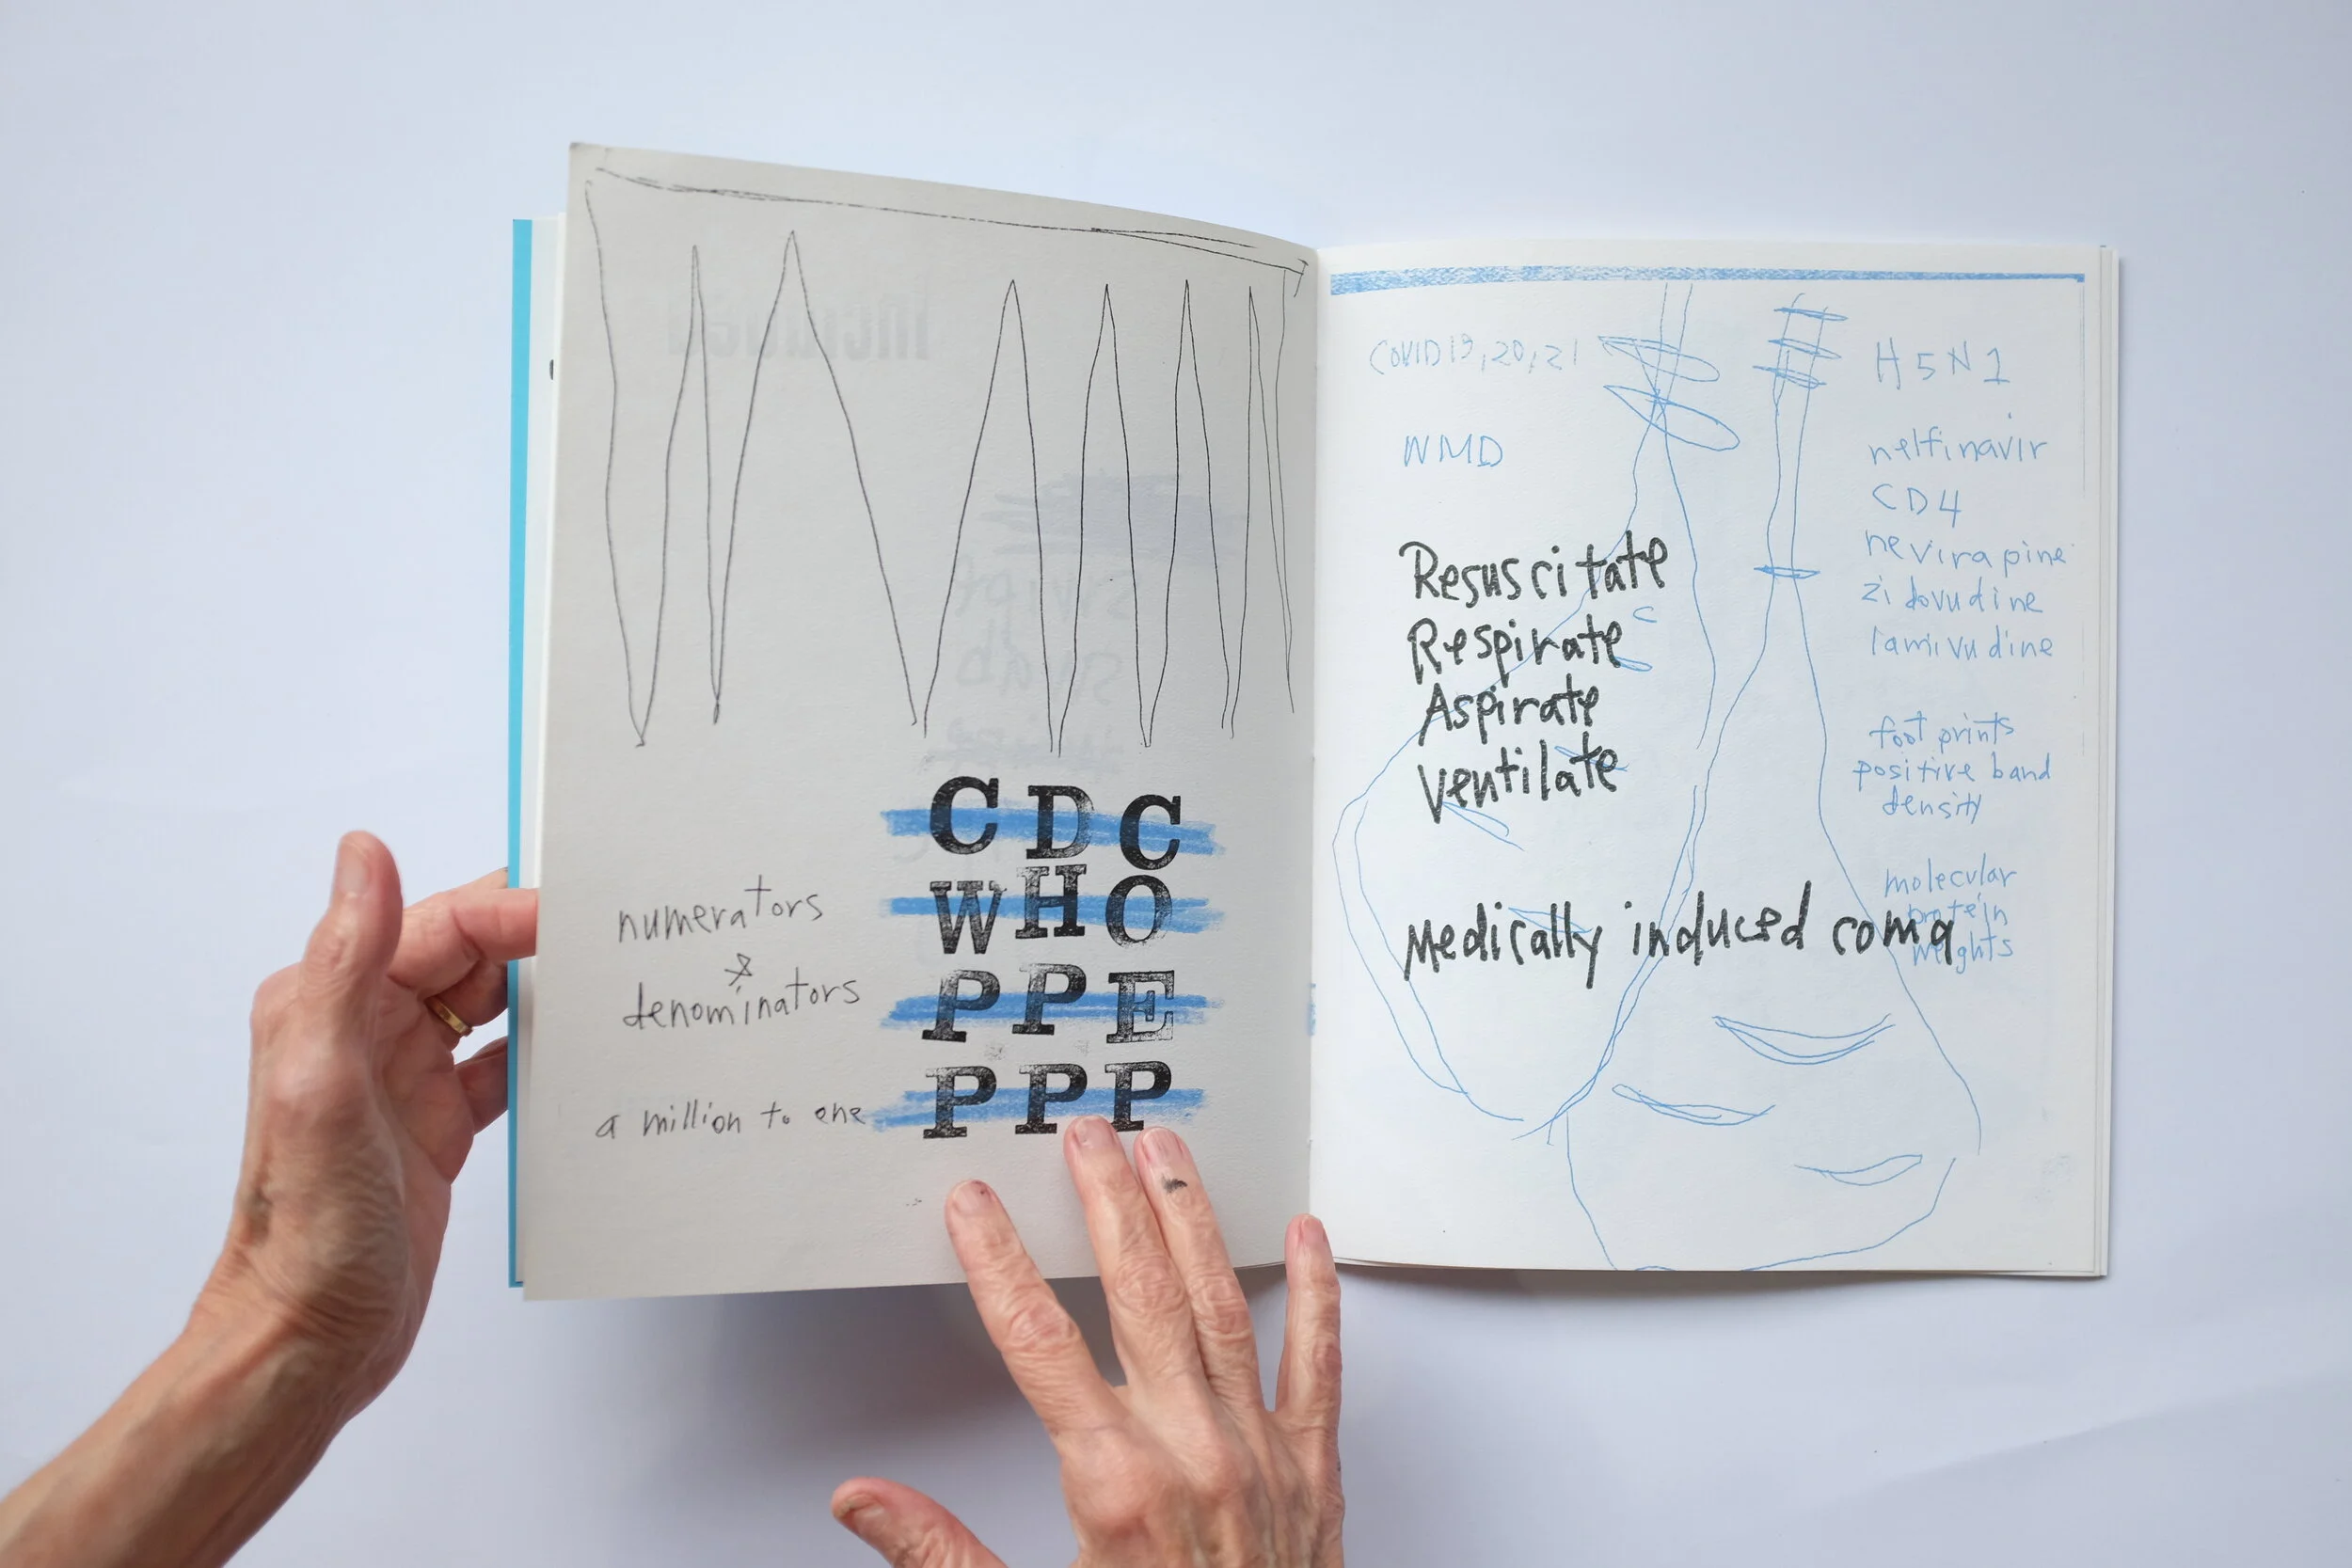 CDC
WHO
PPE
PPP
numerators
&
denominators
a million to one
COVID 19, 20, 21
WMD
Resuscitate
Respirate
Aspirate
Ventilate
Medically induced coma
H5N1
nelfinavir
CD4
nevirapine
zidovudine
lamivudine
foot prints
positive band
density
molecular
protein
weights